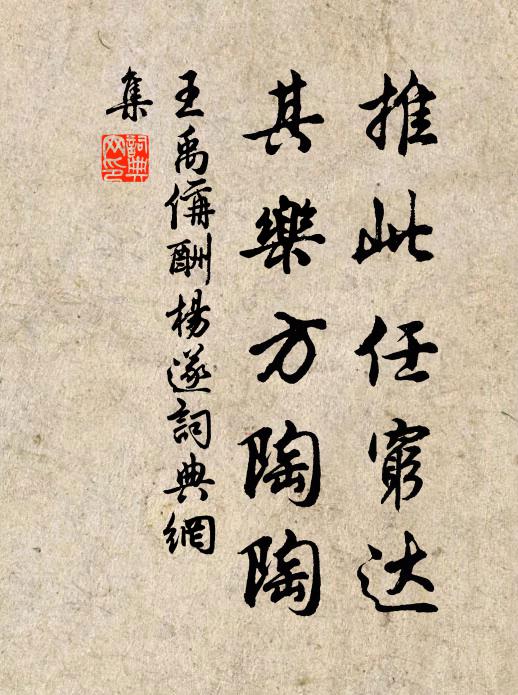 推此任窮达
其樂方陶陶
王禹偁酬楊遂詞典網
集
詞典网印